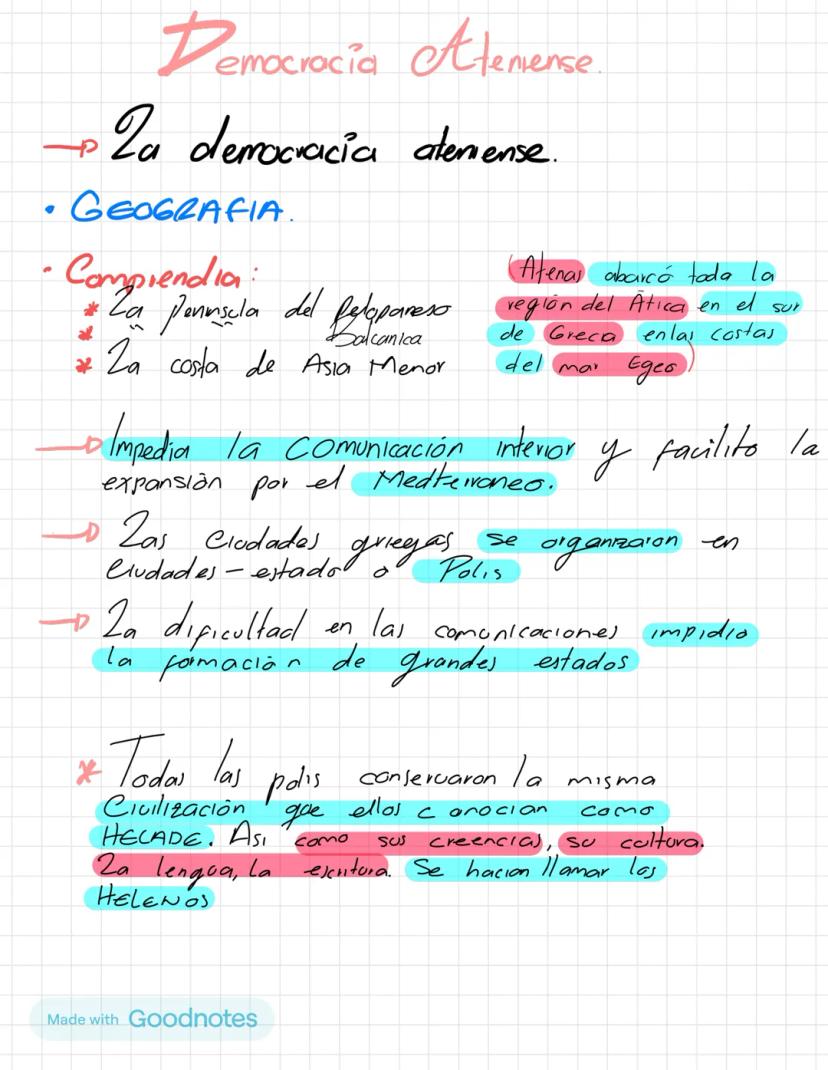 Democracia Ateniense.
→ La democracia ateniense.
• GEOGRAFIA.
• Comprendia:
* La peninsula del Peloponeso
* Balcanica
* La costa de Asia Menor
(Atenas abarcó toda la
región del Ática en el sur
de Grecia en las costas
del mar Egeo)
→ Impedia la comunicación interior y facilito la
expansión por el Mediterraneo.
→ Las ciudades griegas se organizaron en
Ciudades-estado o Polis
→ La dificultad en las comunicaciones impidio
la formación de grandes estados
* Todas las polis conservaron la misma
Civilización que ellos conocian como
HECADE. Asi como sus creencias, su cultura.
La lengua, la escritura. Se hacian llamar los
HELENOS
Made with Goodnotes